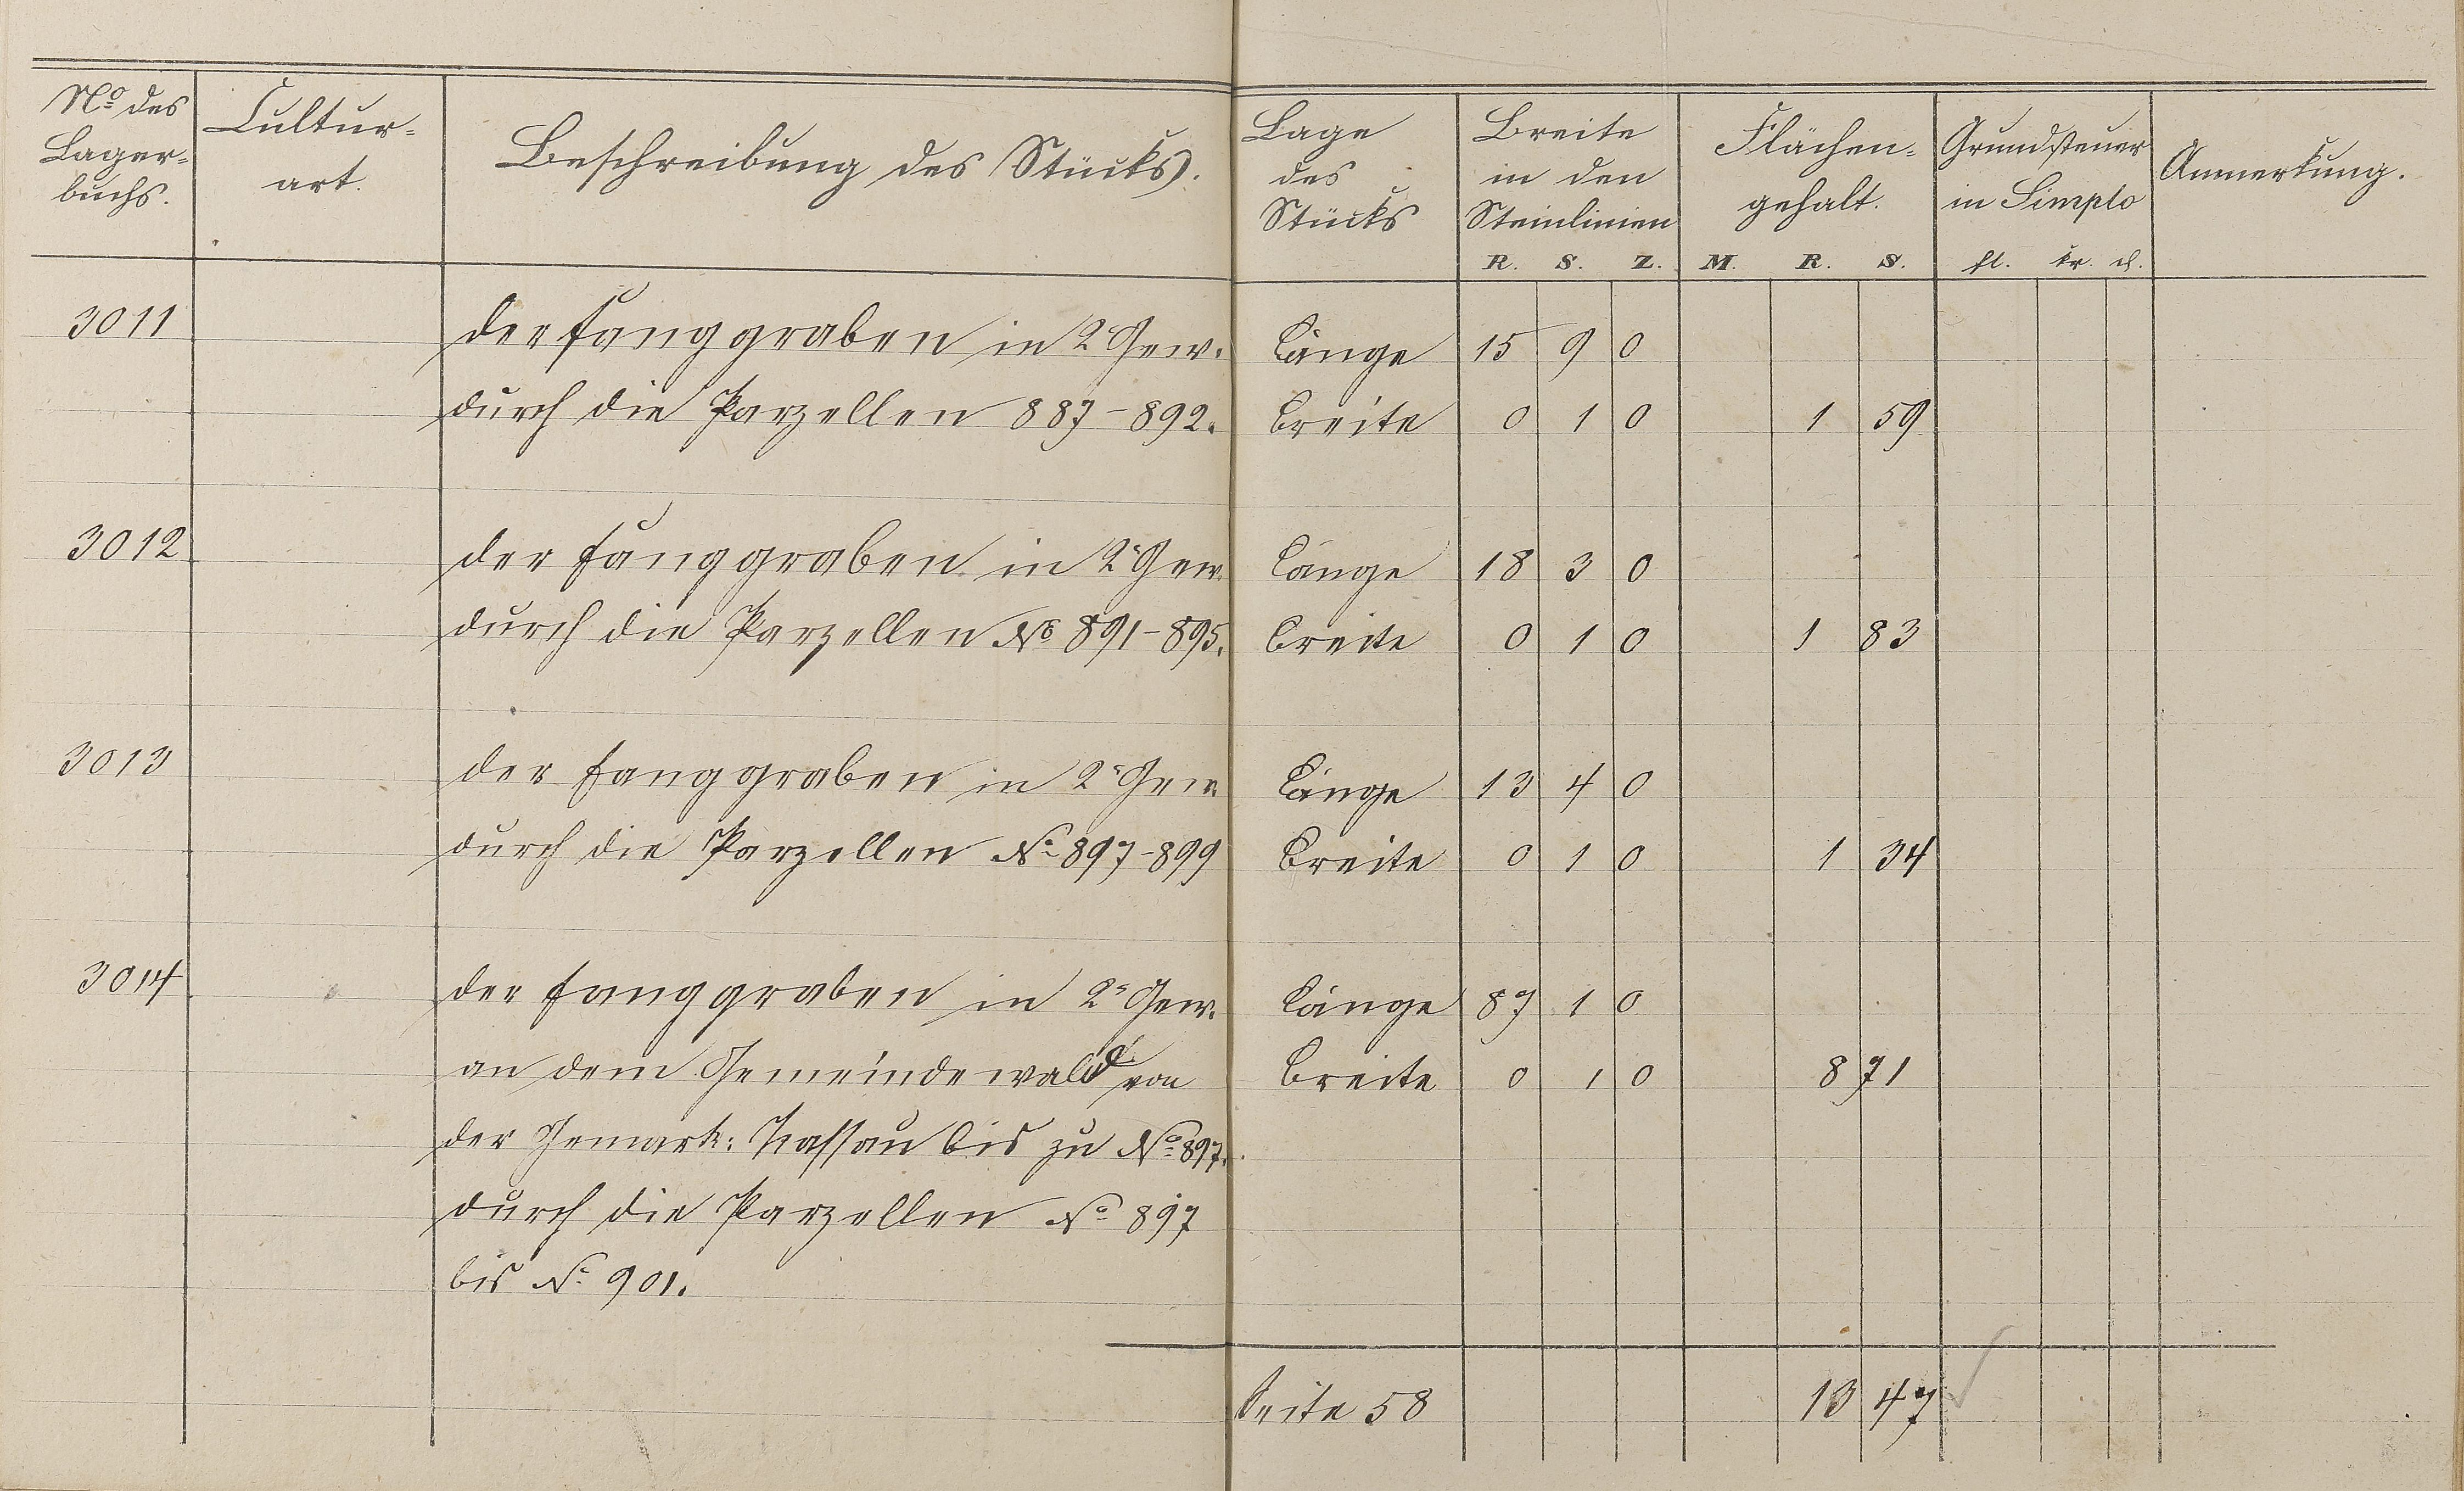 No des Lager- buchs. | Cultur- art. | Beschreibung des Stücks. | Lage des Stücks | Breite in den Steinlinien | Flächen- gehalt. | Grundsteuer in Simplo | Anmerkung.
R. S. Z. | M. R. S. | fl. kr. d.
3011 | der Fanggraben in 2r Gew. | Länge | 15 9 0
durch die Parzellen 887-892. | Breite | 0 1 0 | 1 59
3012 | der Fanggraben in 2r Gew. | Länge | 18 3 0
durch die Parzellen No 891-895. | Breite | 0 1 0 | 1 83
3013 | der Fanggraben in 2r Gew. | Länge | 13 4 0
durch die Parzellen No 897-899 | Breite | 0 1 0 | 1 34
3014 | der Fanggraben in 2r Gew. | Länge | 87 1 0
an dem Gemeindewald von | Breite | 0 1 0 | 8 71
der Gemark: Nassau bis zu No 897.
durch die Parzellen No 897
bis No 901.
Seite 58 | 13 47